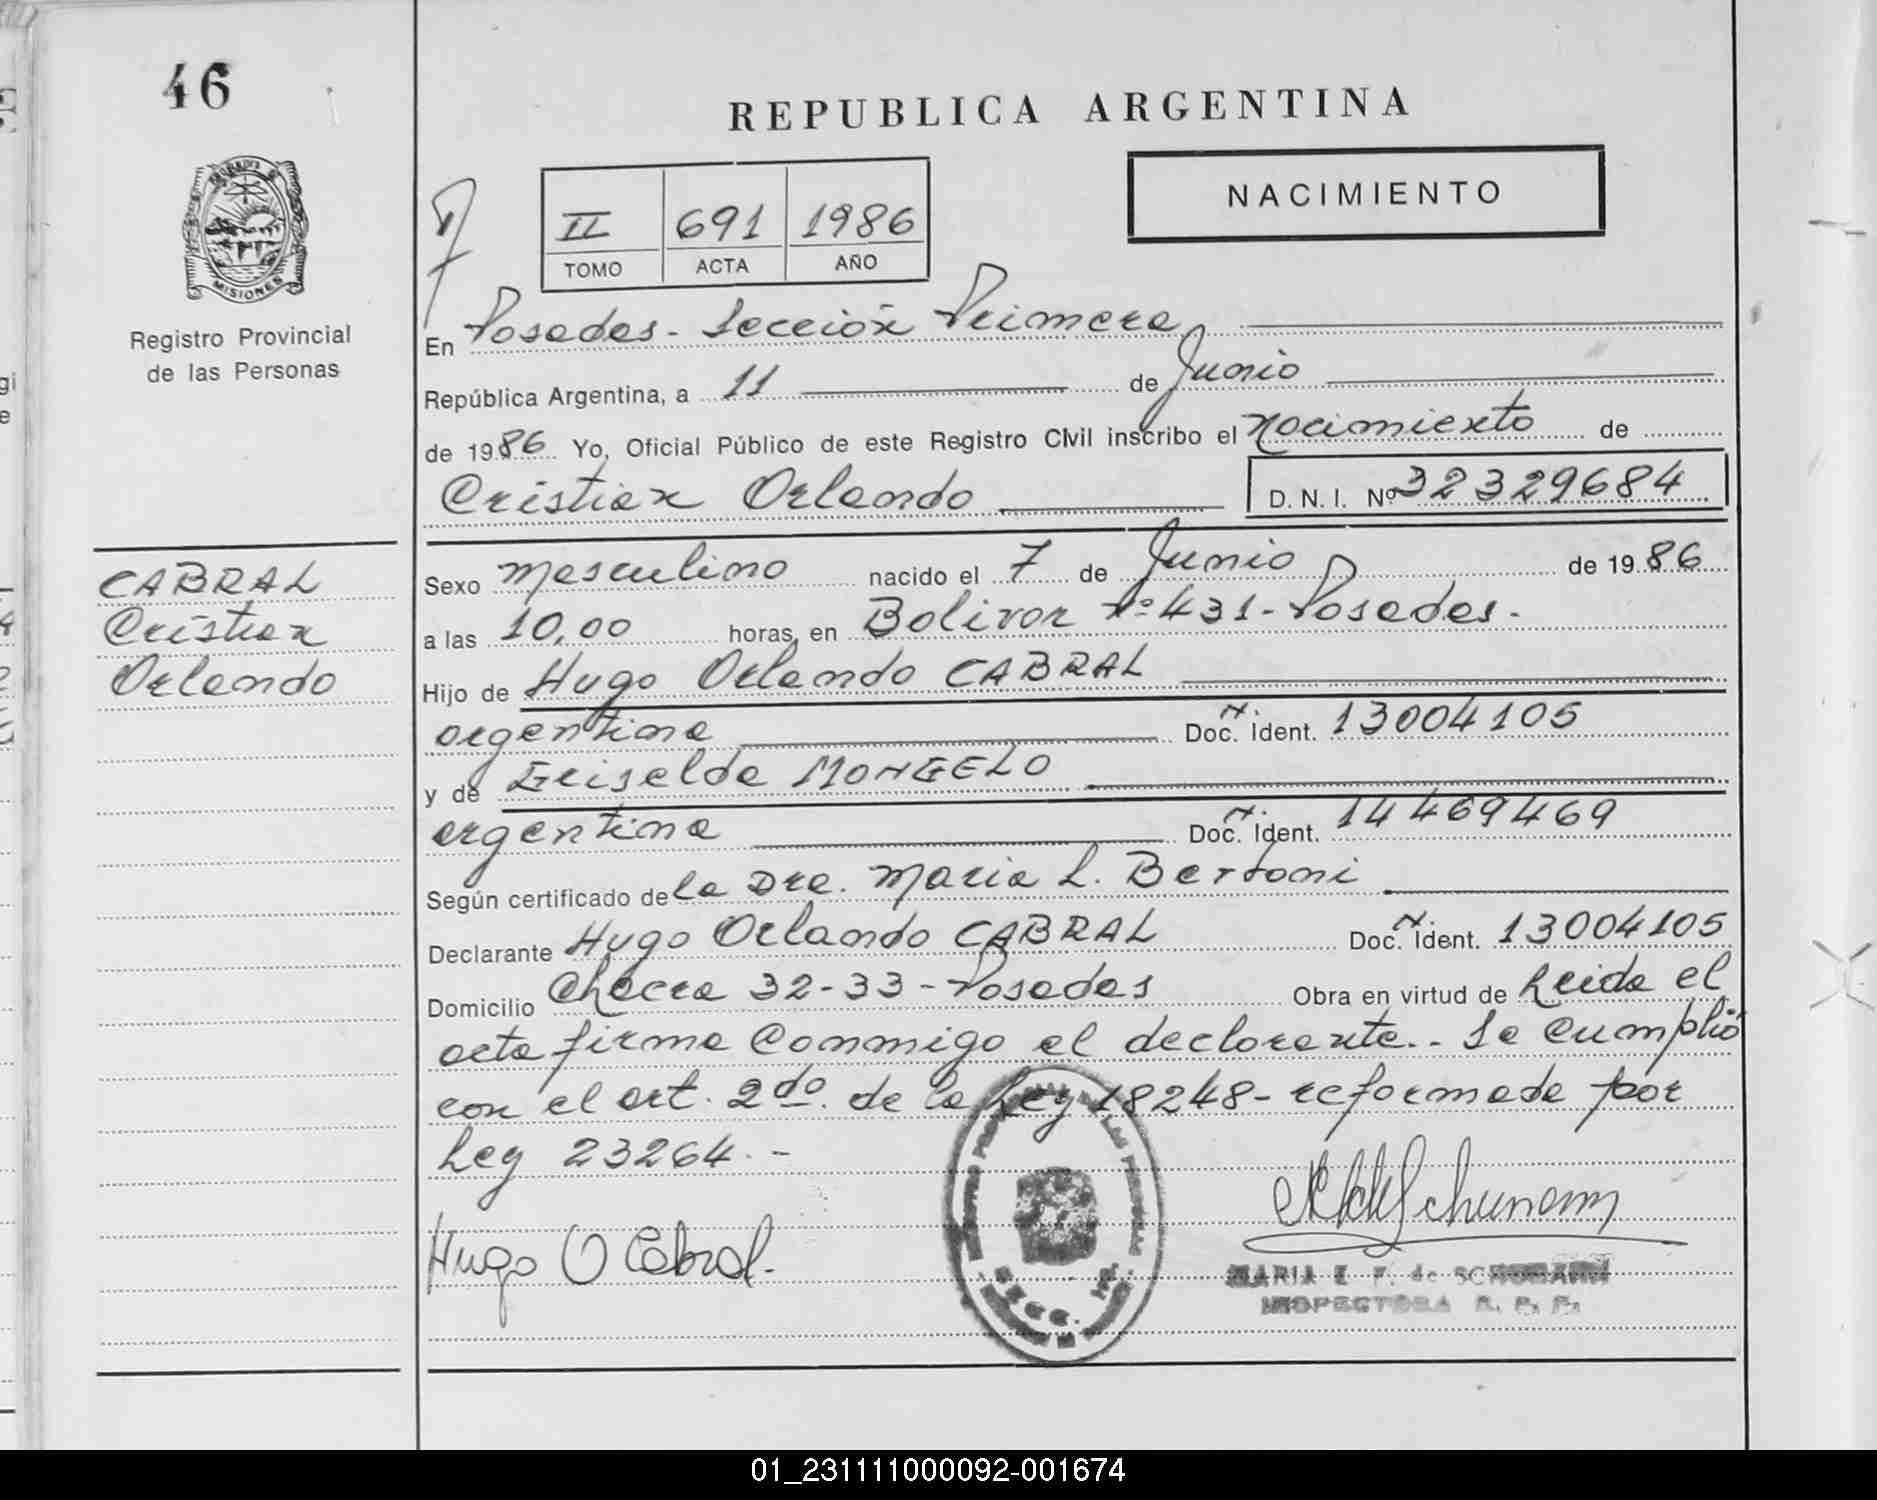 46
REPUBLICA ARGENTINA
NACIMIENTO
II 691 1986
TOMO ACTA AÑO
MISIONES
Registro Provincial
de las Personas
En Posadas - Sección Primera
República Argentina, a 11 de Junio
de 1986 Yo, Oficial Público de este Registro Civil inscribo el nacimiento de
Cristian Orlando D. N. I. Nº 32329684
CABRAL
Cristian
Orlando
Sexo masculino nacido el 7 de Junio de 1986
a las 10,00 horas, en Bolivar Nº 431 - Posadas.
Hijo de Hugo Orlando CABRAL
argentina Doc. N. Ident. 13004105
y de Griselda MONGELO
argentina Doc. N. Ident. 14469469
Según certificado de la Dra. Maria L. Bertoni
Declarante Hugo Orlando CABRAL Doc. N. Ident. 13004105
Domicilio Chacra 32-33 - Posadas Obra en virtud de Leida el
acta firma conmigo el declarante.. Se cumplió
con el art. 2do. de la Ley 18248 - reformada por
Ley 23264. -
Hugo O Cabral.
MARIA E. F. de SCHUMANN
INSPECTORA R. P. P.
01_231111000092-001674